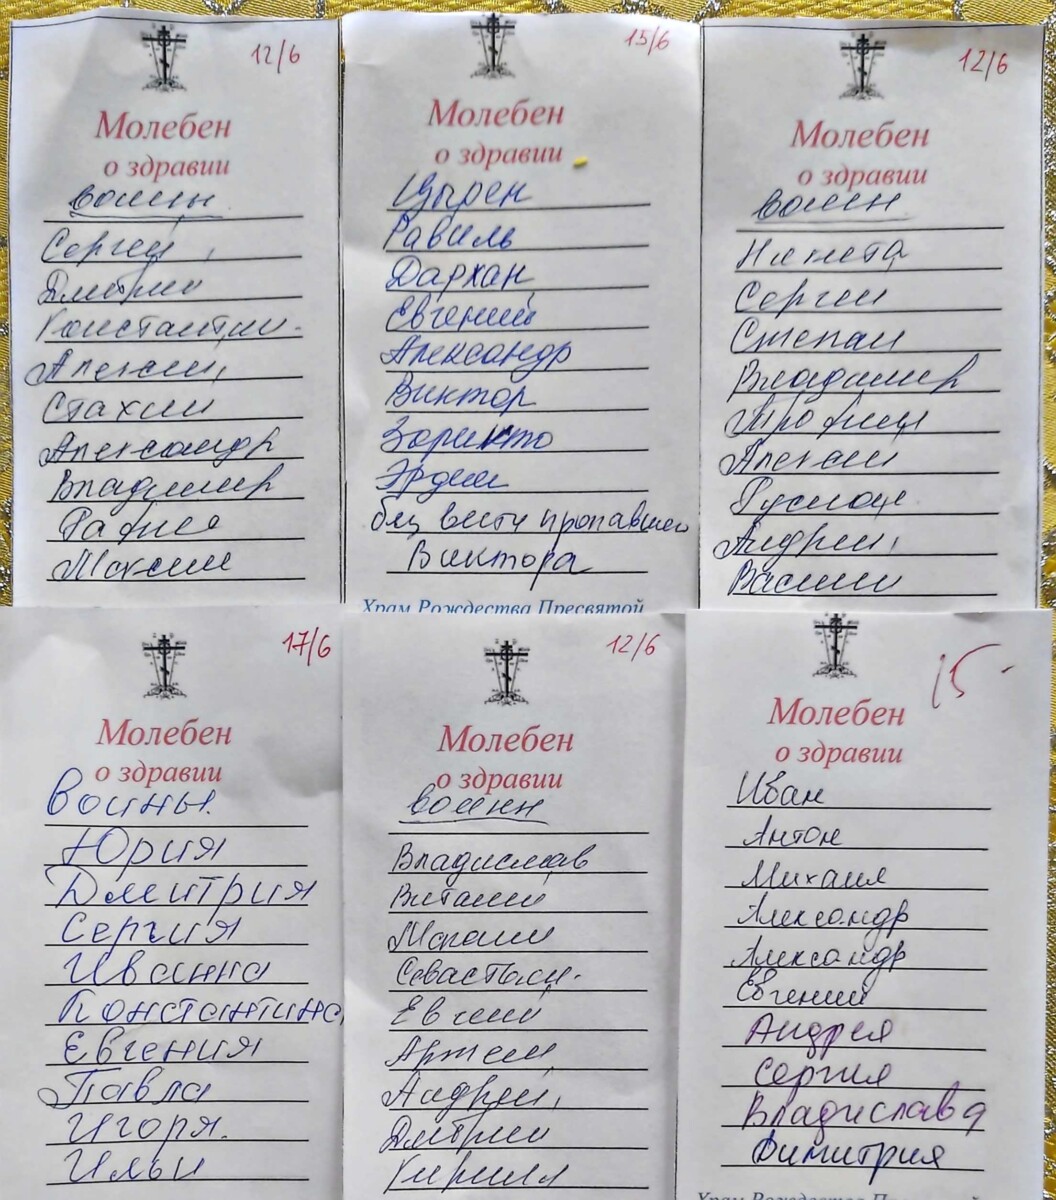 12/6
Молебен
о здравии
воины
Сергий,
Дмитрий
Константин.
Алексий,
Стахий
Александр
Владимир
Максим
15/6
Молебен
о здравии
Цырен
Равиль
Дархан
Евгений
Александр
Виктор
Зорикто
Эрдем
без вести пропавшего
Виктора
Храм Рождества Пресвятой
12/6
Молебен
о здравии
воин
Никита
Сергий
Степан
Владимир
Трофим
Алексий
Руслан
Андрей,
Василий
17/6
Молебен
о здравии
Воины.
Юрия
Дмитрия
Сергия
Иванна
Константина
Евгения
Павла
Игоря.
Ильи
12/6
Молебен
о здравии
воини
Владислав
Виталий
Севастьян.
Евгений
Артем
Андрей,
Дмитрий
Кирилл
15-
Молебен
о здравии
Иван
Антон
Михаил
Александр
Александр
Евгений
Андрея
Сергия
Владислава
Димитрия